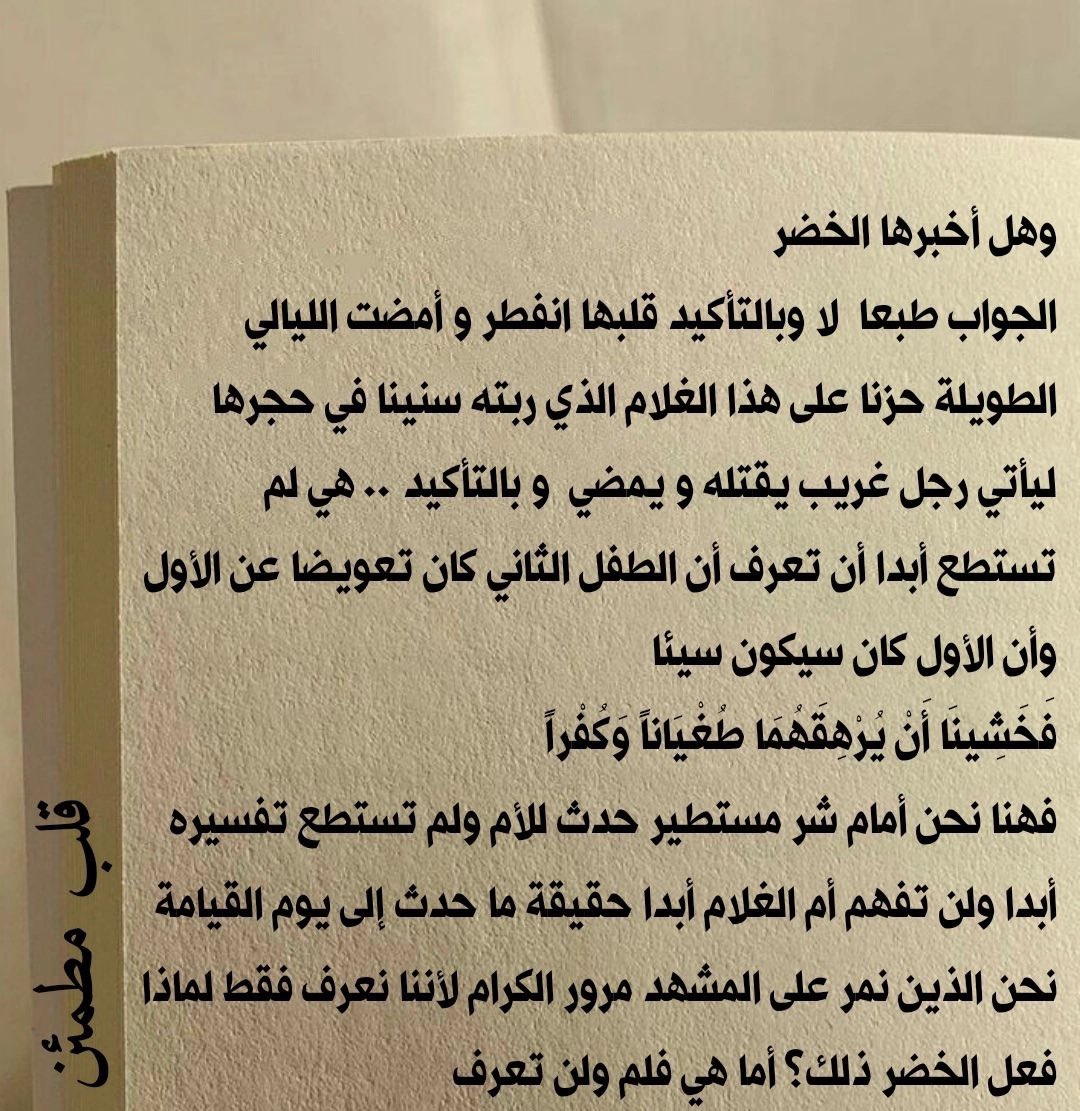 وهل أخبرها الخضر
الجواب طبعا لا وبالتأكيد قلبها انفطر و أمضت الليالي
الطويلة حزنا على هذا الغلام الذي ربته سنينا في حجرها
ليأتي رجل غريب يقتله و يمضي و بالتأكيد .. هي لم
تستطع أبدا أن تعرف أن الطفل الثاني كان تعويضا عن الأول
وأن الأول كان سيكون سيئا
فَخَشِينَا أَنْ يُرْهِقَهُمَا طُغْيَاناً وَكُفْراً
فهنا نحن أمام شر مستطير حدث للأم ولم تستطع تفسيره
أبدا ولن تفهم أم الغلام أبدا حقيقة ما حدث إلى يوم القيامة
نحن الذين نمر على المشهد مرور الكرام لأننا نعرف فقط لماذا
فعل الخضر ذلك؟ أما هي فلم ولن تعرف
قلب مطمئن